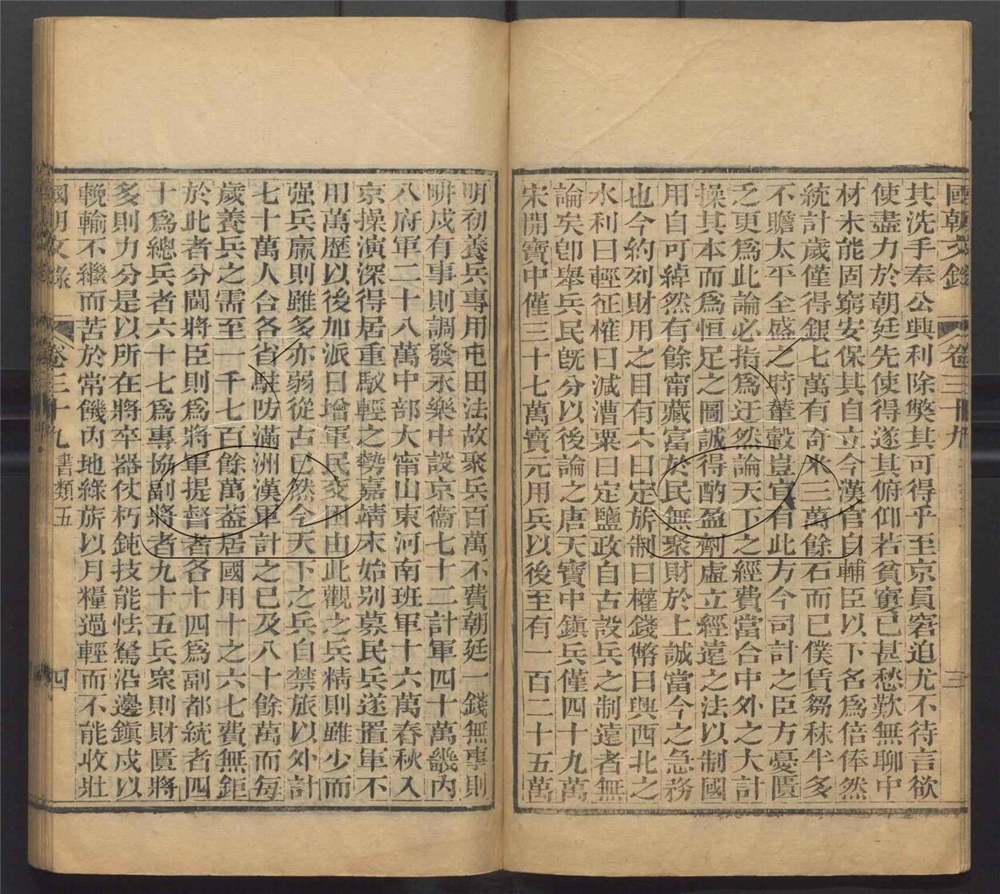 國朝文錄 卷三十九 三
其洗手奉公興利除獘其可得乎至京員窘迫尤不待言欲
使盡力於朝廷先使得遂其俯仰若貧窶已甚愁歎無聊中
材未能固窮安保其自立今漢官自輔臣以下名爲倍俸然
統計歲僅得銀七萬有奇米三萬餘石而已僕賃芻秣半多
不贍太平全盛之時輦轂豈宜有此方今司計之臣方憂匱
乏更爲此論必指爲迂然論天下之經費當合中外之大計
操其本而爲恒足之圖誠得酌盈劑虛立經遠之法以制國
用自可綽然有餘甯藏富於民無聚財於上誠當今之急務
也今約列財用之目有六曰定旂制曰權錢幣曰興西北之
水利曰輕征榷曰減漕粟曰定鹽政自古設兵之制遠者無
論矣卽舉兵民旣分以後論之唐天寶中鎮兵僅四十九萬
宋開寶中僅三十七萬寶元用兵以後至有一百二十五萬
明初養兵專用屯田法故聚兵百萬不費朝廷一錢無事則
畊戍有事則調發永樂中設京衞七十二計軍四十萬畿內
八府軍二十八萬中部大甯山東河南班軍十六萬春秋入
京操演深得居重馭輕之勢嘉靖末始別募民兵遂置軍不
用萬歷以後加派日增軍民交困由此觀之兵精則雖少而
强兵羸則雖多亦弱從古已然今天下之兵自禁旅以外計
七十萬人合各省駐防滿洲漢軍計之已及八十餘萬而每
歲養兵之需至一千七百餘萬葢居國用十之六七費無鉅
於此者分閫將臣則爲將軍提督者各十四爲副都統者四
十爲總兵者六十七爲專協副將者九十五兵衆則財匱將
多則力分是以所在將卒器仗朽鈍技能怯駑沿邊鎮戍以
輓輸不繼而苦於常饑內地綠旂以月糧過輕而不能收壯
國朝文錄 卷三十九 書類五 四